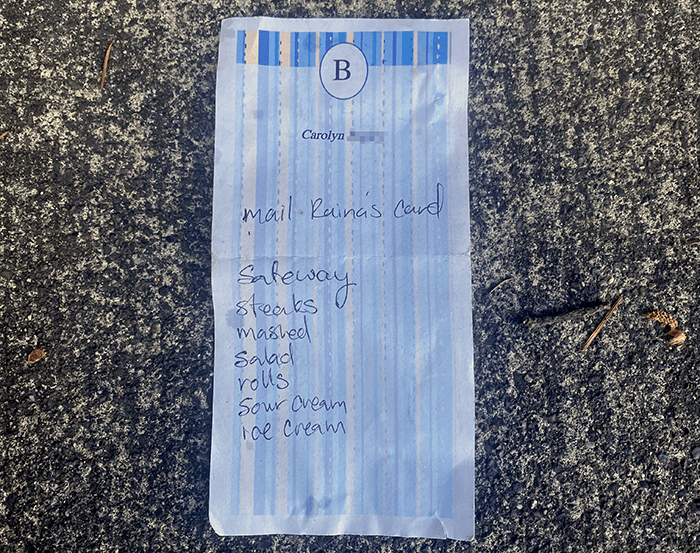 B
Carolyn
mail Raina's card
Safeway
steaks
mashed
salad
rolls
sour cream
ice cream